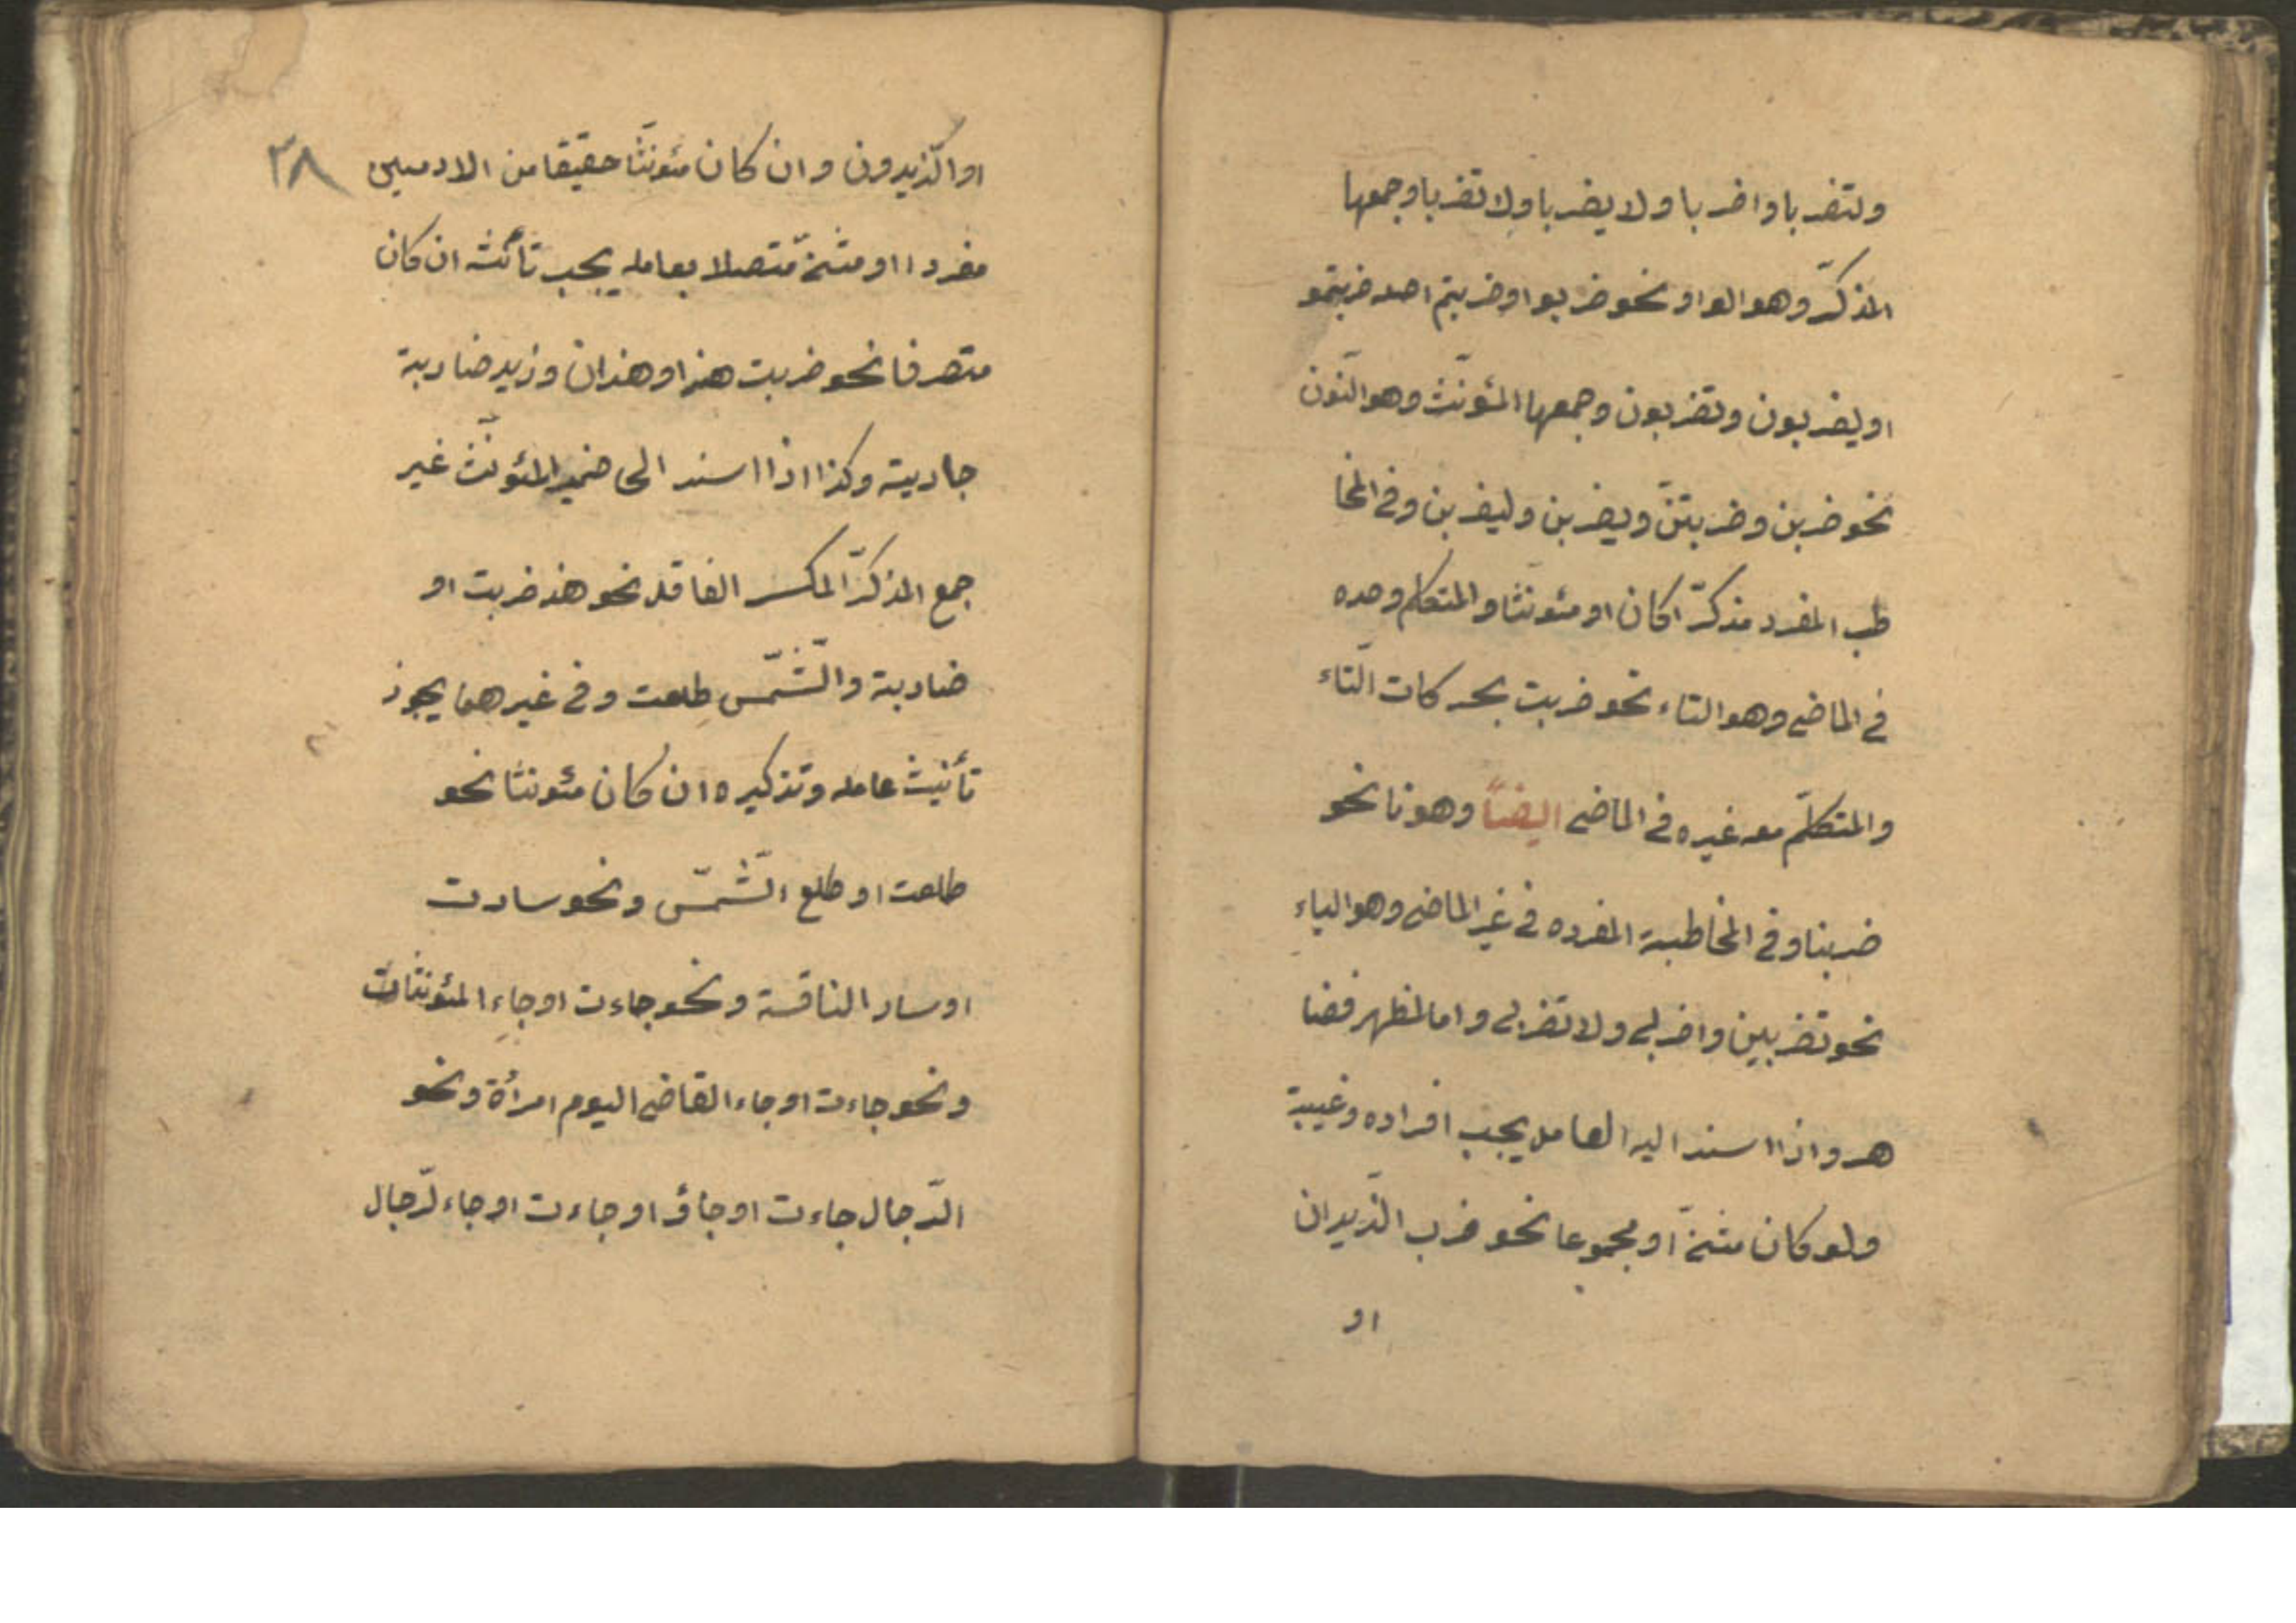 ولتضربا واضربا ولا يضربا ولا تضربا وجمعها
المذكّر وهو الواو نحو ضربوا وضربتم اصله ضربتمو
اويضربون وتضربون وجمعها المئونّث وهو النّون
نحو ضربن وضربتنّ ويضربن وليضربن وفى المخا
طب المفرد مذكرّا كان او مئونّثا والمتكلم وحده
فى الماضى وهو التاء نحو ضربت بحركات التّاء
والمتكلّم معه غيره فى الماضى ايضاً وهو نا نحو
ضربنا وفى المخاطبية المفرده فى غير الماضى وهو الياء
نحو تضربين واضربى ولا تضربى واما لمظهر فضا
هر واذا اسند اليه العامل يجب افراده وغيبية
ولو كان مثنىّ او مجموعا نحو ضرب الزّيدان
او
٣٨
او الزّيدون وان كان مئونّثا حقيقا من الادميين
مفردا او مثنىّ متّصلا بعامله يجب تأنثه ان كان
متصرفا نحو ضربت هندا وهندان وزيد ضاربة
جاريته وكذا اذا اسند الى ضمير المئونّث غير
جمع المذكرّ المكسر العاقل نحو هند ضربت او
ضاربة والشّمّس طلعت وفى غيرهما يجوز
تأنيث عامله وتذكيره ان كان مئونثا نحو
طلعت او طلع الشّمّس ونحو سارت
او سار الناقة ونحو جاءت او جاء المئونثات
ونحو جاءت او جاء القاضى اليوم امرأة ونحو
الرّجال جاءت او جاؤ او جاءت او جاء لرّجال